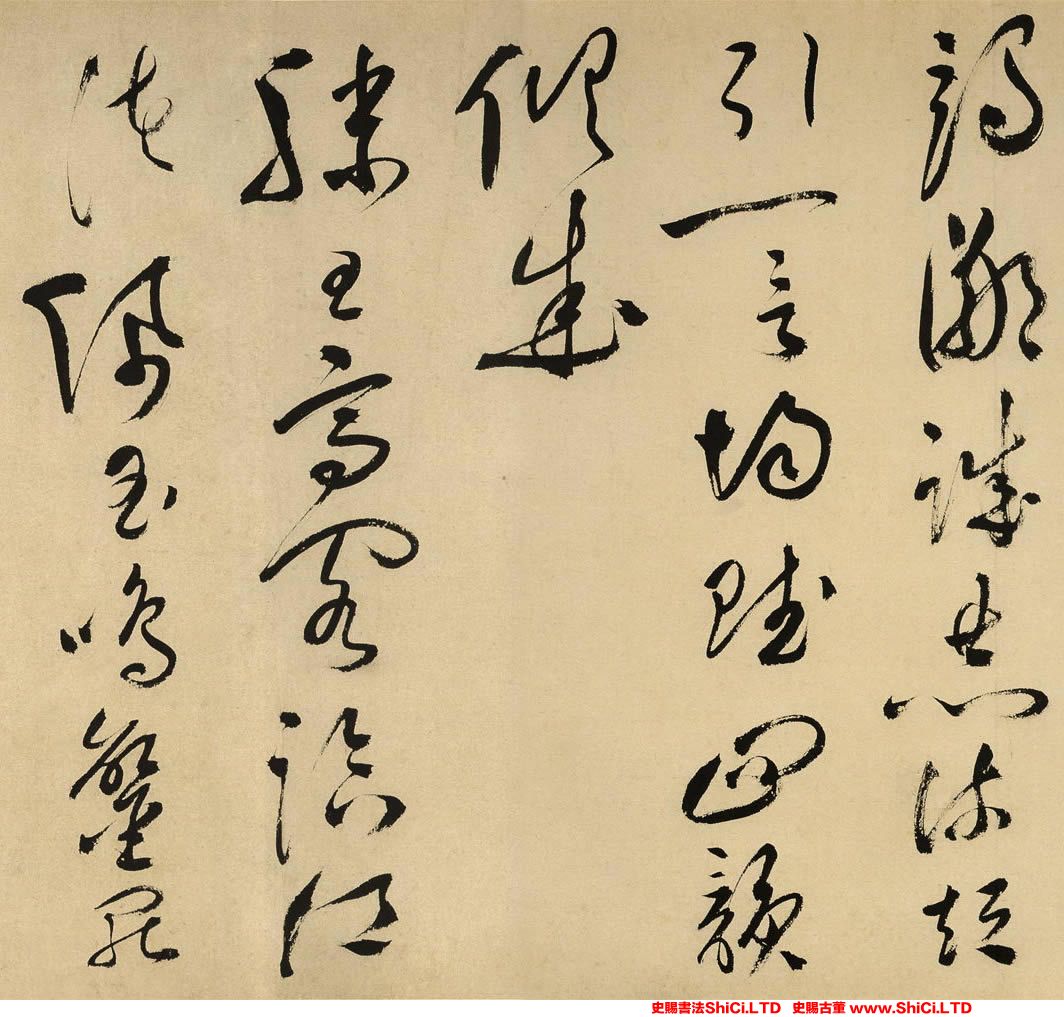 竭鄙誠恭疏短
引一言均賦四韻
俱成
滕王高閣臨江
渚佩玉鳴鑾罷
史賜書法ShiCi.LTD 史賜古董 www.ShiCi.LTD